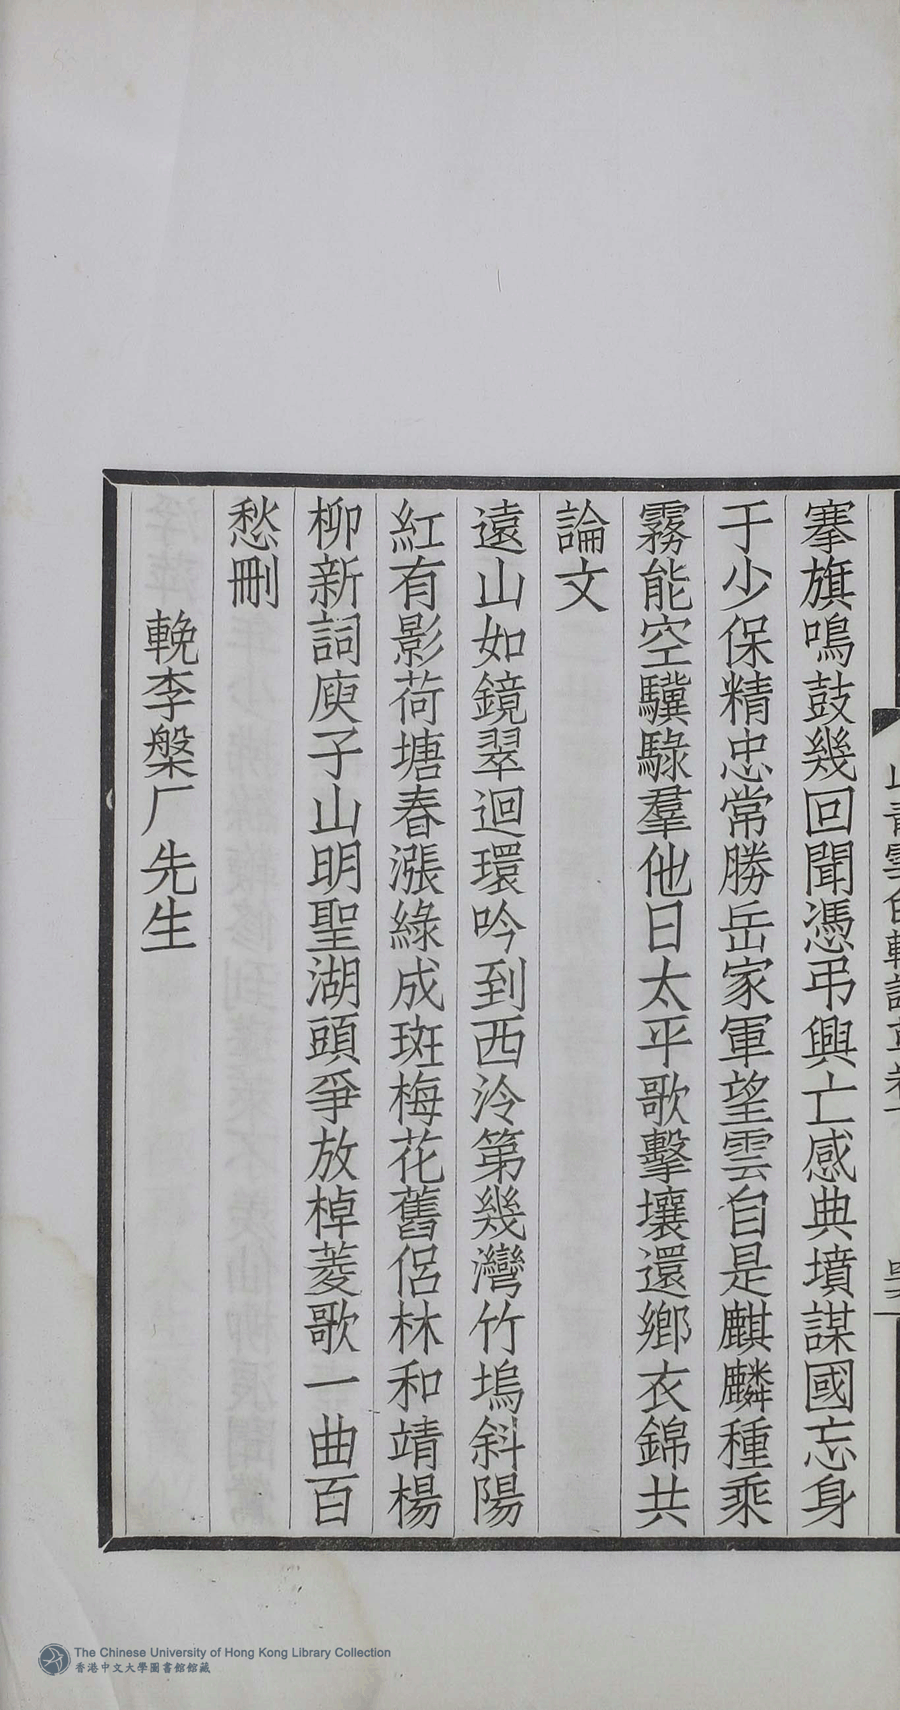 搴旗鳴鼓幾回聞憑弔興亡感典墳謀國忘身
于少保精忠常勝岳家軍望雲自是麒麟種乘
霧能空驥騄羣他日太平歌擊壤還鄉衣錦共
論文
遠山如鏡翠迴環吟到西泠第幾灣竹塢斜陽
紅有影荷塘春漲綠成斑梅花舊侶林和靖楊
柳新詞庾子山明聖湖頭爭放棹菱歌一曲百
愁刪
輓李槃厂先生
The Chinese University of Hong Kong Library Collection
香港中文大學圖書館館藏